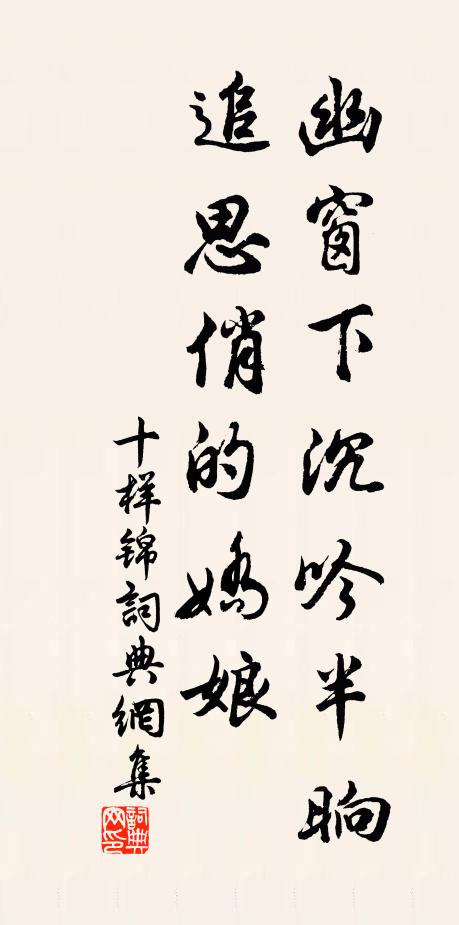 幽窗下沉吟半晌
追思俏的嬌娘
十样锦詞典網集
詞典网印